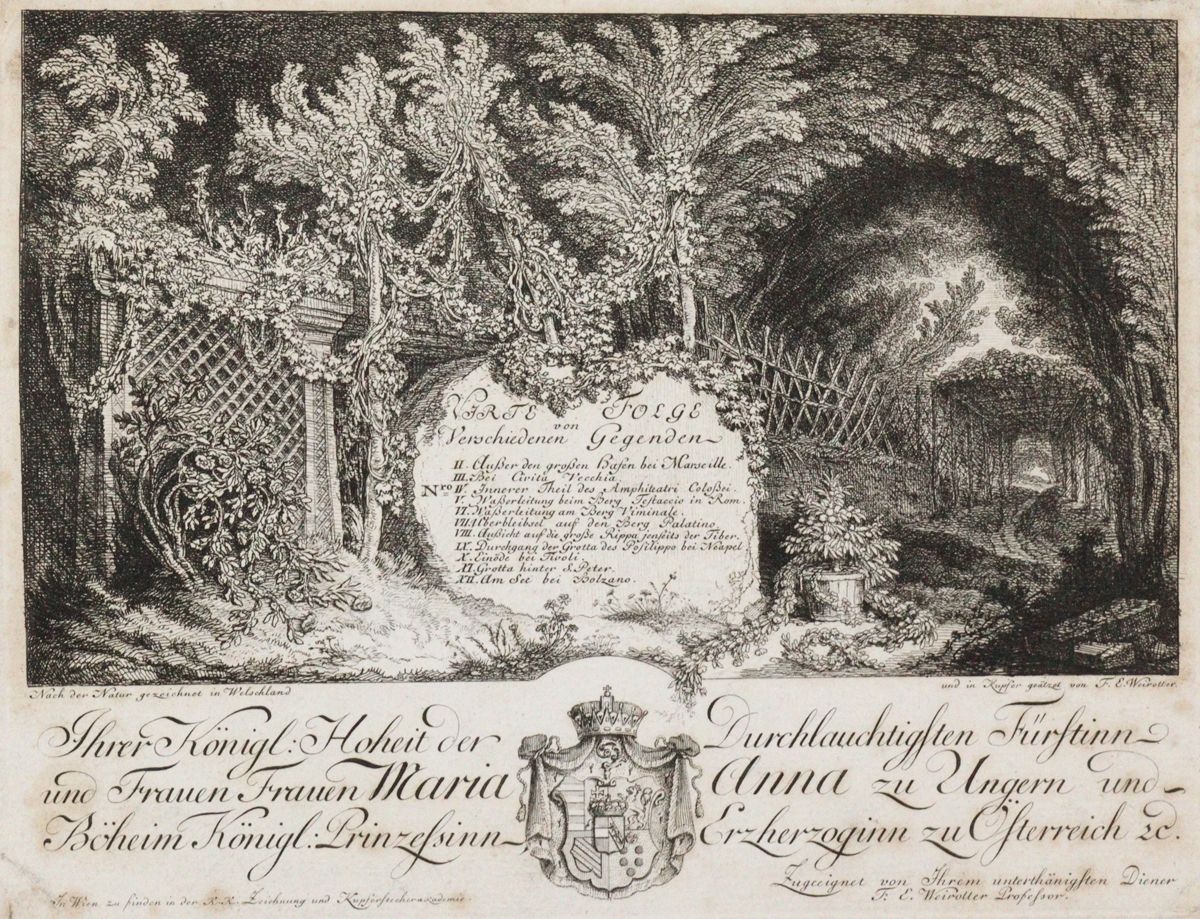 VIRTE FOLGE
von
Verschiedenen Gegenden
II. Außer den großen Hafen bei Marseille.
III. Bei Civita Vecchia.
Nro IV. Innerer Theil des Amphiteatri Coloßei.
V. Waßerleitung beim Berg Testaccio in Rom.
VI. Waßerleitung am Berg Viminale.
VII. Uberbleibsel auf den Berg Palatino.
VIII. Außicht auf die große Rippa jenseits der Tiber.
IX. Durchgang der Grotta des Posilippo bei Neapel
X. Einöde bei Tivoli.
XI. Grotta hinter S. Peter.
XII. Am See bei Bolzano.
Nach der Natur gezeichnet in Welschland
und in Kupfer geätzet von F. E. Weirotter.
Ihrer Königl: Hoheit der Durchlauchtigsten Fürstinn
und Frauen Frauen Maria Anna zu Ungern und
Böheim Königl: Prinzessinn Erzherzoginn zu Österreich ꝛc.
Zugeeignet von Ihrem unterthänigsten Diener
F. E. Weirotter Professor.
In Wien zu finden in der K. K. Zeichnung und Kupferstecherakademie.